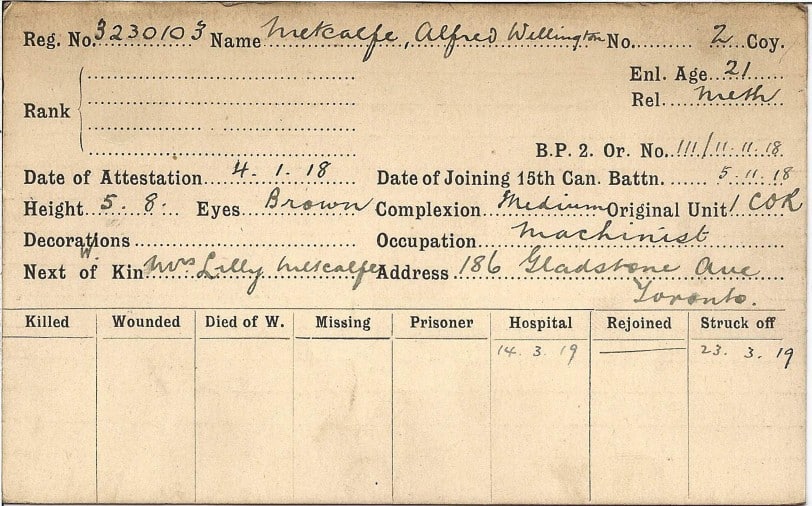 Reg. No. 3230103 Name Metcalfe, Alfred Wellington No. 2 Coy.
Enl. Age 21
Rel. Meth
Rank
B.P. 2. Or. No. 111/11.11.18
Date of Attestation 4.1.18 Date of Joining 15th Can. Battn. 5.11.18
Height 5.8. Eyes Brown Complexion Medium Original Unit 1 COR
Decorations Occupation Machinist
W.
Next of Kin Mrs Lilly Metcalfe Address 186 Gladstone Ave
Toronto.
Killed Wounded Died of W. Missing Prisoner Hospital Rejoined Struck off
14.3.19 23.3.19